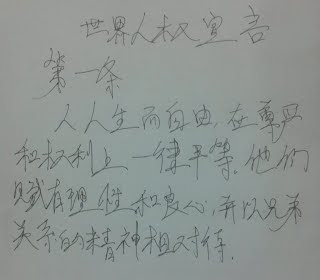 世界人权宣言
第一条
人人生而自由,在尊严
和权利上一律平等.他们
赋有理性和良心,并以兄弟
关系的精神相对待.